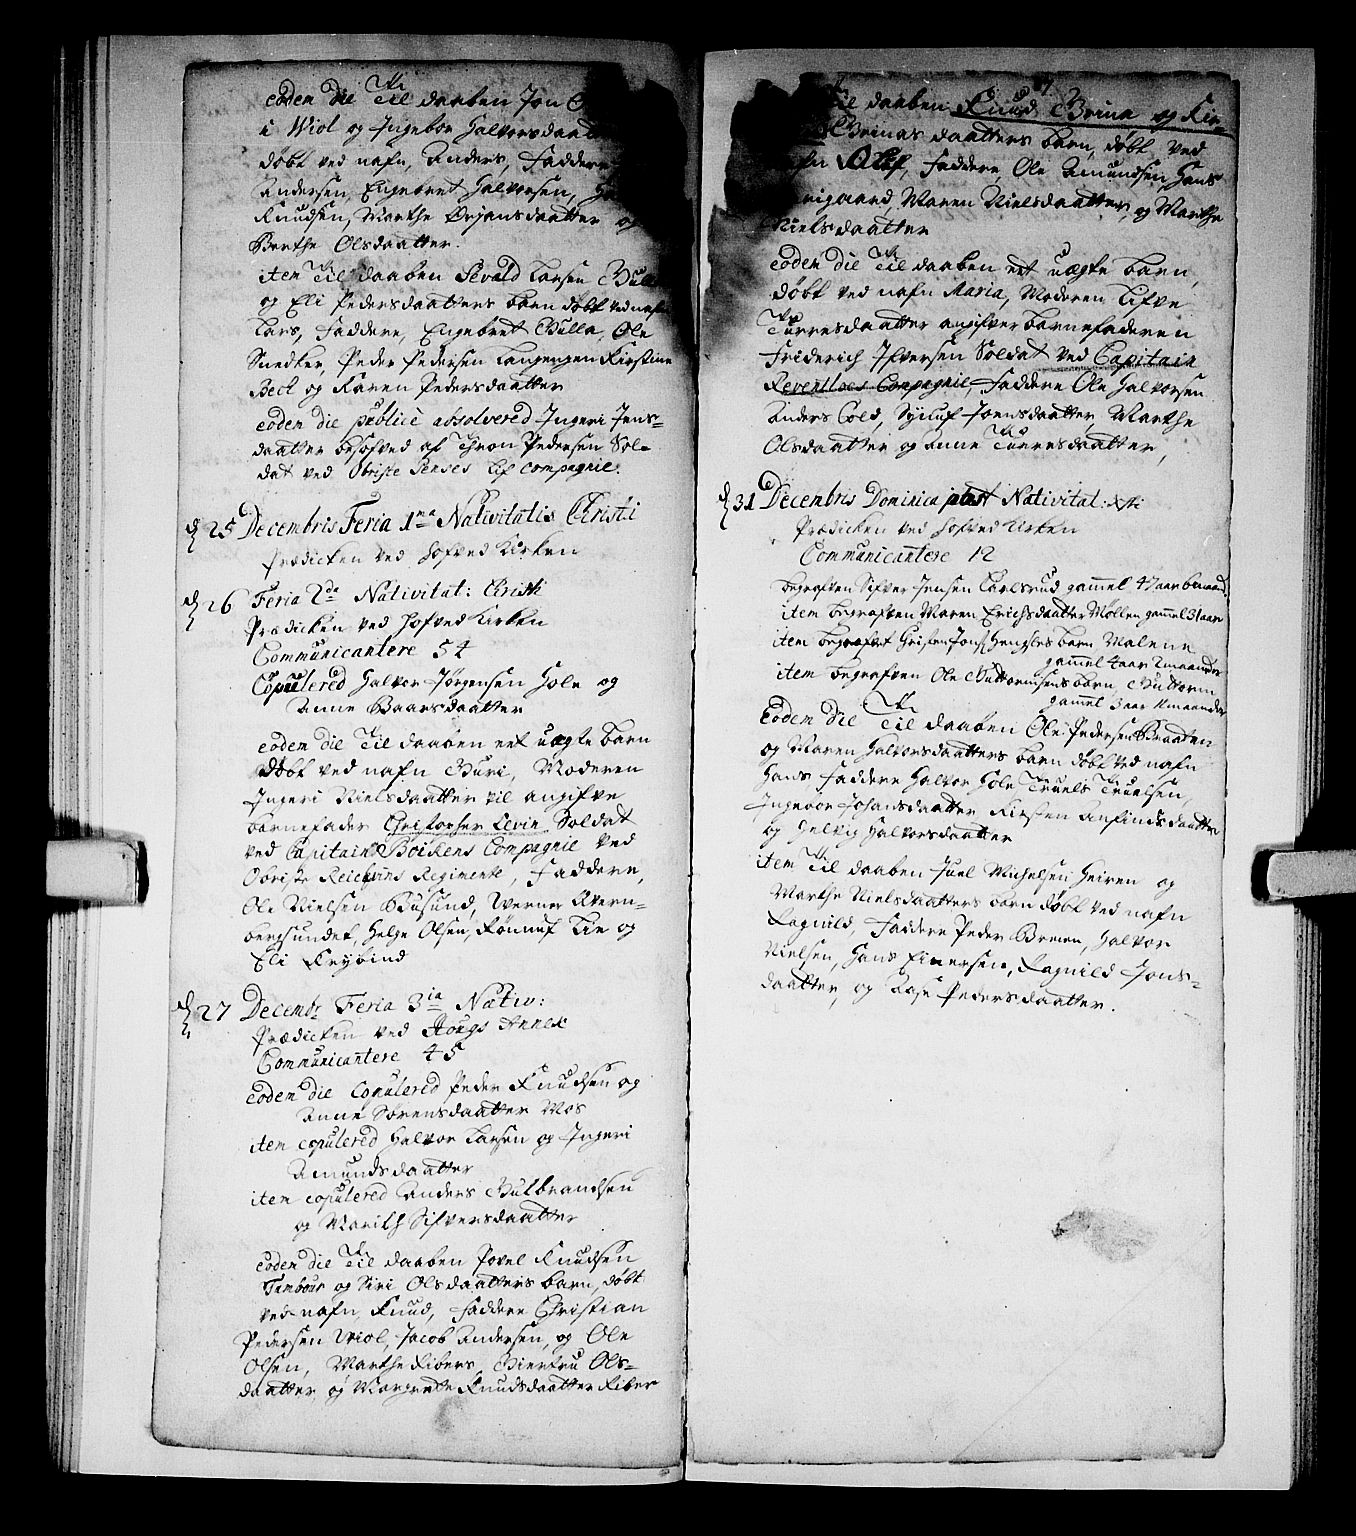 eodem die Til daaben Jon
i Wiol og Ingebor Halvorsdaatters
døbt ved nafn, Anders, Faddere
Andersen, Engebret Halvorsen,
Knudsen, Marthe Ørjansdaatter og
Berthe Olsdaatter.
item Til daaben Sevald Larsen Bulla
og Eli Pedersdaatters barn døbt ved nafn
Lars, Faddere, Engebret Bulla, Ole
Snedker, Peder Pedersen Langengen Kirstine
Beck og Karen Pedersdaatter
eodem die publicè absolvered Ingeri Jens-
daatter besofved af Thron Pedersen Sol-
dat ved Obriste Senses Lif Compagnie.
d 25 Decembris Feria 1ma Nativitatis Christi
Prædicken ved Hofved Kirken
d 26 Feria 2da Nativitat: Christi
Prædicken ved Hofved Kirken
Communicantere 54
Copulered Halvor Jørgensen Hole og
Anne Baarsdaatter
eodem die Til daaben eet uægte barn
døbt ved nafn Guri, Moderen
Ingeri Nielsdaatter vil angifve
barnefader Christopher Levin Soldat
ved Capitain Boikens Compagnie ved
Obriste Reichwins Regimente, Faddere,
Ole Nielsen Busund, Werner Kvern-
bergsundet, Helge Olsen, Rønnuf Lie og
Eli Frybind
d 27 Decembr Feria 3ia Nativ:
Prædicken ved Hougs Annex
Communicantere 45
eodem die Copulered Peder Knudsen og
Anne Sørensdaatter Mos
item copulered Halvor Larsen og Ingeri
Amundsdaatter
item copulered Anders Gulbrandsen
og Marith Sifversdaatter
eodem die Til daaben Povel Knudsen
Tambour og Siri Olsdaatters barn, døbt
ved nafn, Knud, Faddere Christian
Pedersen Wiol, Jacob Andersen, og Ole
Olsen, Marthe Fibers, Giertru Ols-
daatter, og Margrete Knudsdaatter Fiber
Til daaben Knud Brina og Kir-
Brinas daatters barn, døbt ved
Olef, Faddere, Ole Amundsen, Hans
Maren Nielsdaatter, og Marthe
Nielsdaatter
eodem die Til daaben eet uægte barn,
døbt ved nafn Maria, Moderen Lifve
Turresdaatter angifver barnefaderen
Friderich Ifversen Soldat ved Capitain
Reventloes Compagnie, Faddere Ole Halvorsen
Anders Cold, Syiluf Joensdaatter, Marthe
Olsdaatter og Anne Turresdaatter,
d 31 Decembris Dominica post Nativitat: Xsti
Prædicken ved Hofved Kirken
Communicantere 12
begrafven Sifver Jensen Carlsrud gammel 47 aar
item begrafven Maren Erichsdaatter Møllen gammel 31 aar
item begrafvet Christen Jons Hengsles barn Malene
gammel 4 aar 2 maaneder
item begrafven Ole Guttormsens barn, Guttorm
gammel 3 aar 11 maaneder
Eodem die Til daaben Ole Pedersen Braaten
og Maren Halvorsdaatters barn døbt ved nafn
Hans, Faddere Halvor Hole Truels Truelsen,
Ingebor Johansdaatter Kirsten Anfindsdaatter
og Helvig Halvorsdaatter
item Til daaben Juel Michelsen Heiren og
Marthe Nielsdaatters barn døbt ved nafn
Ragnild, Faddere Peder Breien, Halvor
Nielsen, Hans Einersen, Ragnild Jons-
daatter, og Aase Pedersdaatter.